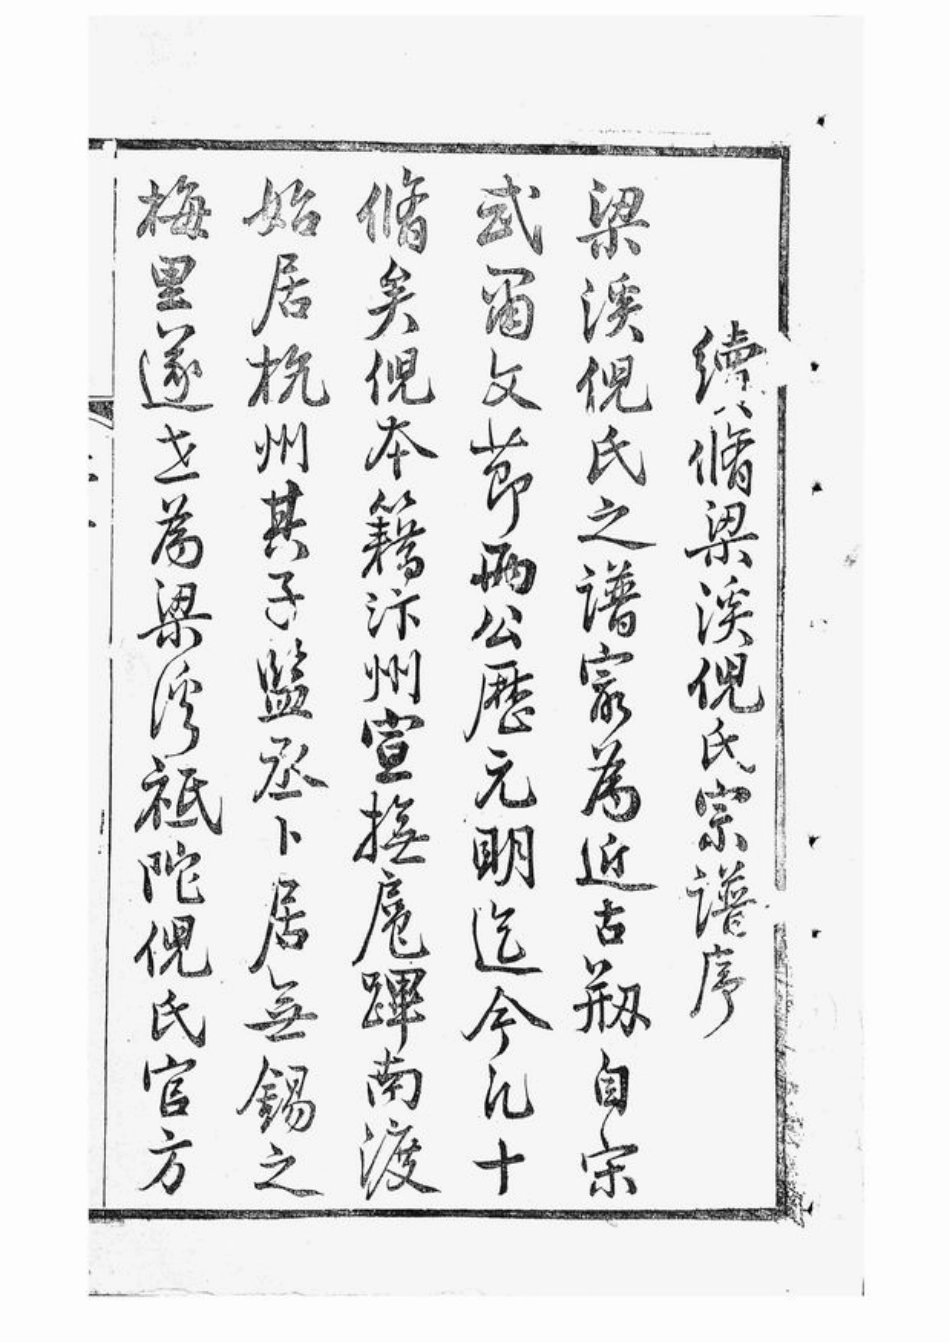 續脩梁溪倪氏宗譜序
梁溪倪氏之譜冣為近古剏自宋
式甯文節兩公歷元明迄今凡十
脩矣倪本籍汴州宣撫扈蹕南渡
始居杭州其子監丞卜居無錫之
梅里遂世為梁溪祗陀倪氏官方